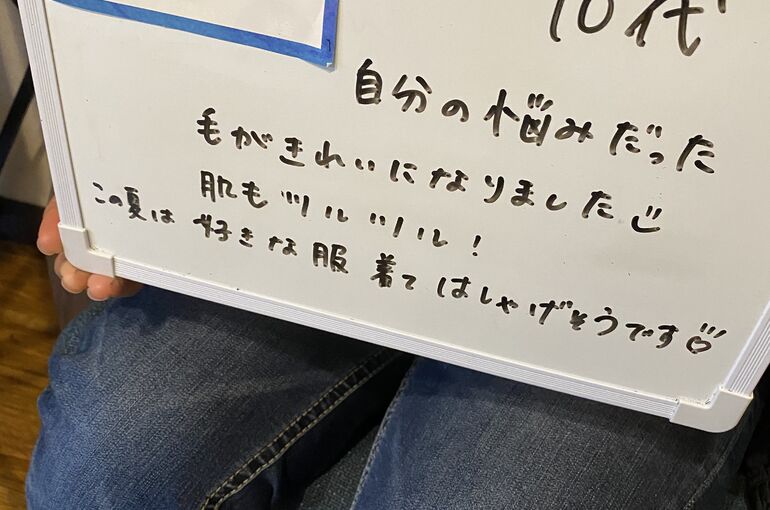 10代
自分の悩みだった
毛がきれいになりました
肌もツルツル!
この夏は好きな服着てはしゃげそうです♡